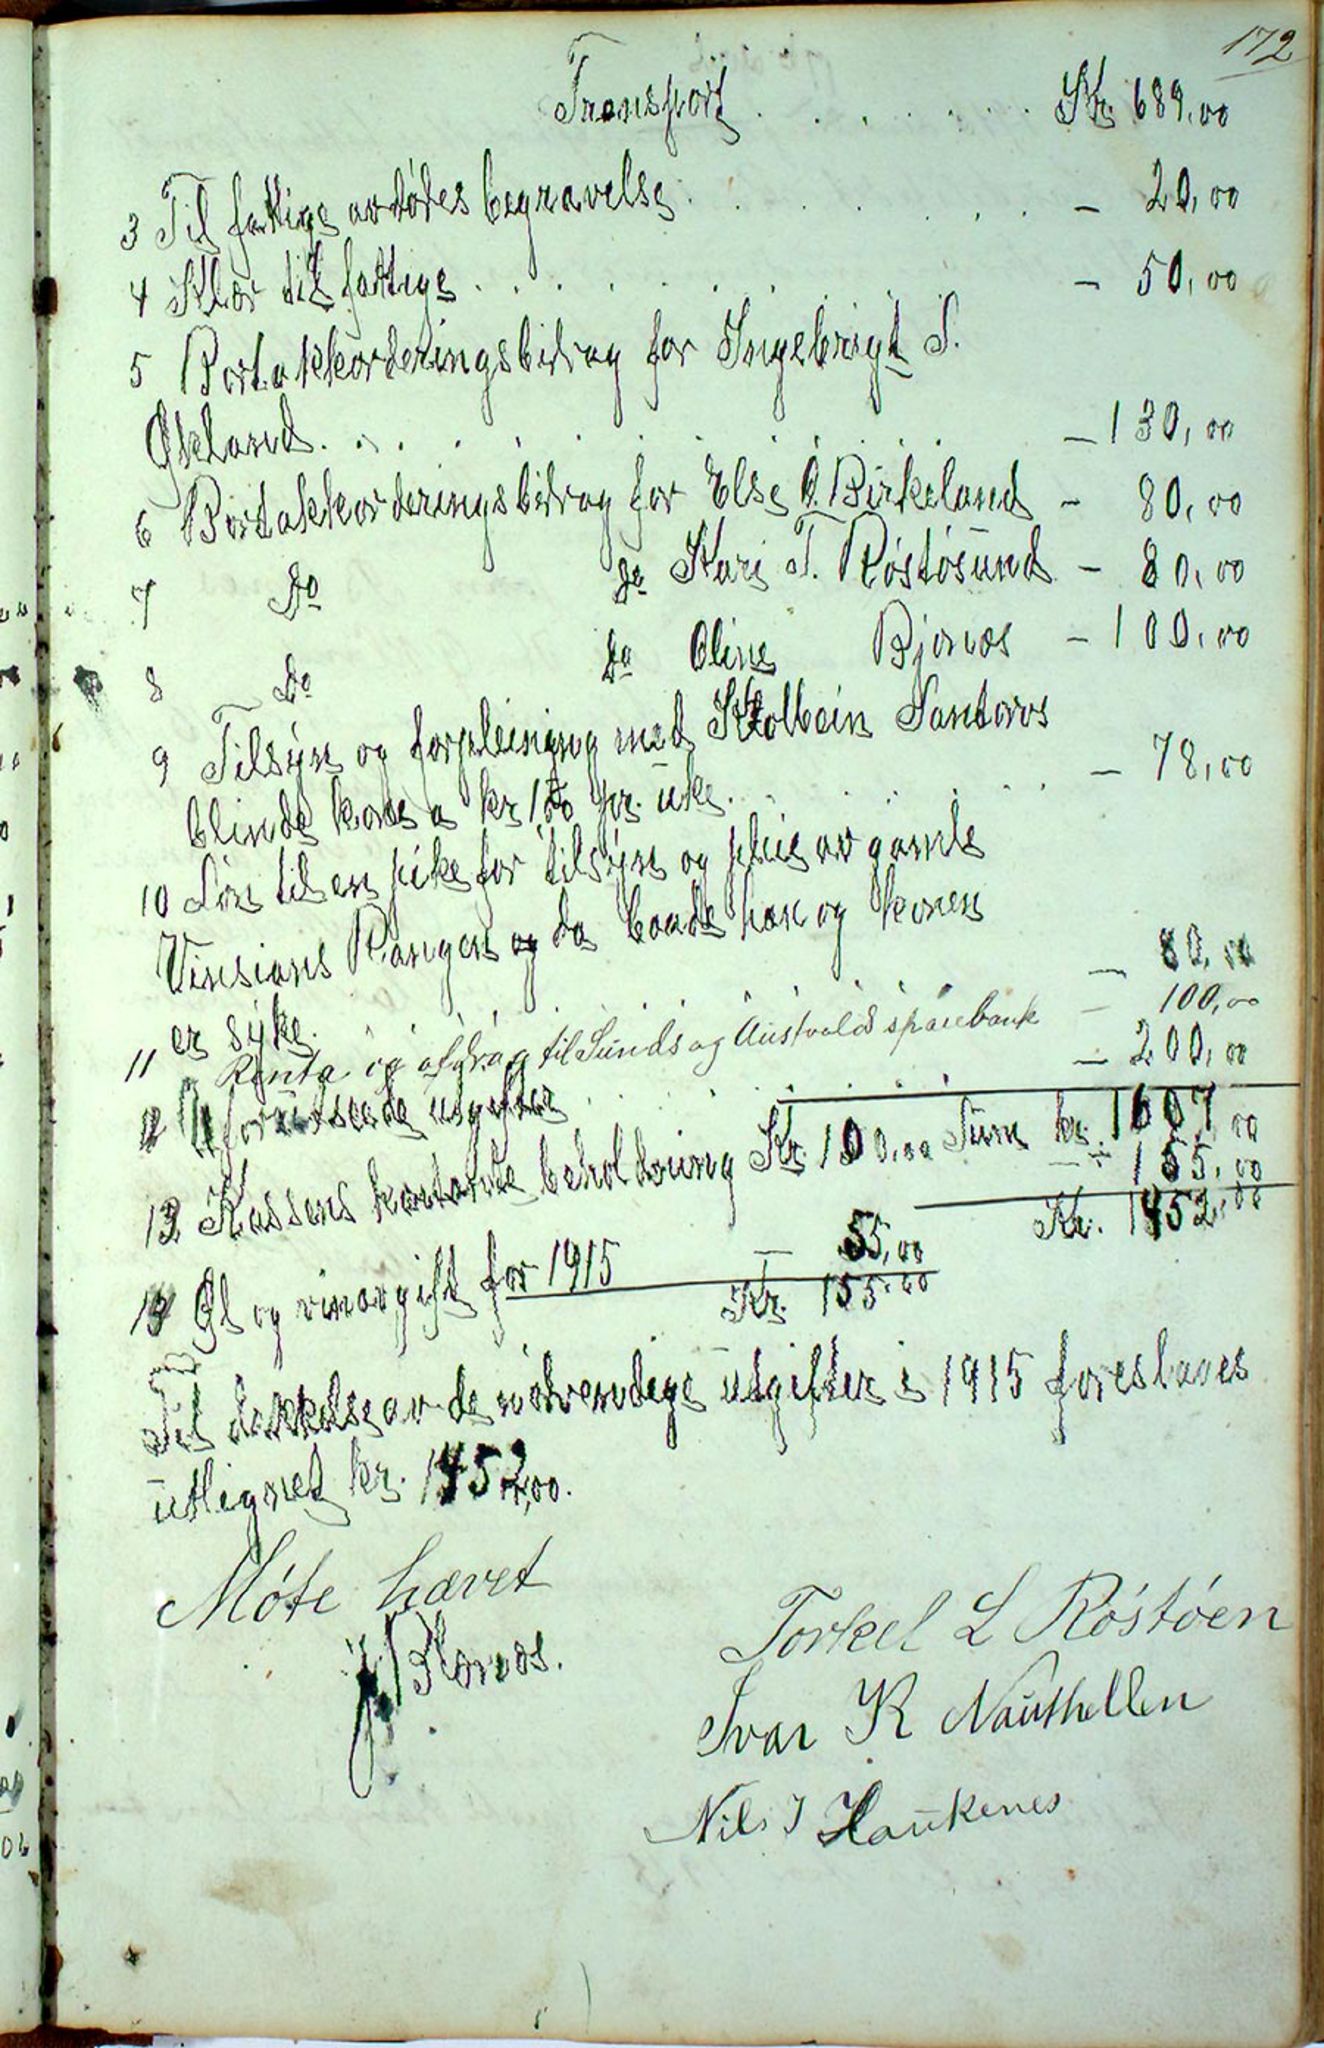 172
Transport . . . . . . Kr. 689,00
3 Til fattige avdødes begravelse . . . . . . . — 20,00
4 Klær til fattige . . . . . . . . — 50,00
5 Bortakkorderingsbidrag for Ingebrigt S.
Økland . . . . . . . . . . . — 130,00
6 Bortakkorderingsbidrag for Else O. Birkeland — 80,00
7 Do do Kari T. Røstøsund — 80,00
8 Do do Oline Bjønæs — 100,00
9 Tilsyn og forpleining med Kolbein Sandvos
blinde kone a kr 1,50 pr. uke . . . . . . — 78,00
10 Løn til en pike for tilsyn og pleie av gamle
Vinsians Vangen og da baade han og konen
er syke. . . . . . . — 80,00
11 Renta og afdrag til Sunds og Austvolds sparebank — 100,00
12 Uforutseede utgifter . . . . . . . — 200,00
Sum kr. 1607,00
13 Kassens kontante beholdning Kr. 100,00 — ÷ 155,00
Kr. 1452,00
14 Øl og vinavgift for 1915 — 55,00
Kr. 155,00
Til dækkelse av de nødvendige utgifter i 1915 foreslaaes
utlignet kr. 1452,00.
Møte hævet
Torkel L Røstøen
Ivar K Nauthellen
Nils I Haukenes